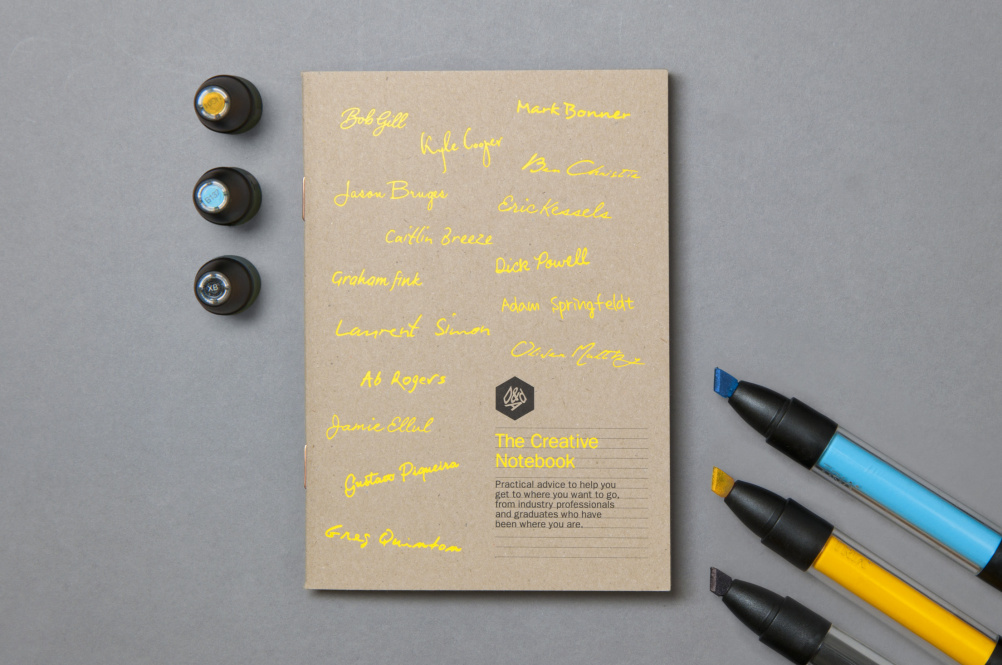 Bob Gill
Mark Bonner
Kyle Cooper
Ben Christie
Jason Bruges
Eric Kessels
Caitlin Breeze
Dick Powell
Graham fink
Adam Springfeldt
Laurent Simon
Oliver
Ab Rogers
Jamie Ellul
Gustavo Piqueira
Greg Quinton
D&AD
The Creative
Notebook
Practical advice to help you
get to where you want to go,
from industry professionals
and graduates who have
been where you are.
XB